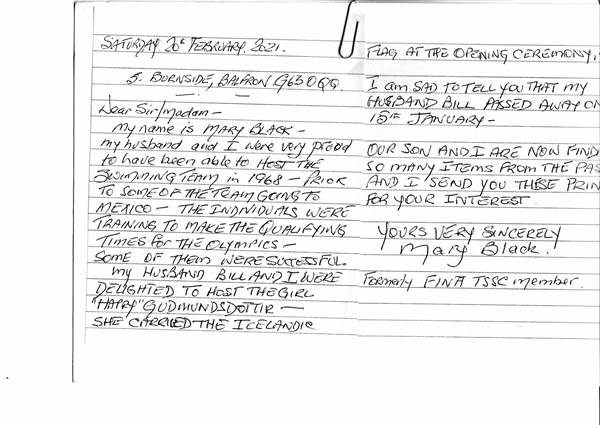 SATURDAY 20th FEBRUARY. 2021.
5. BURNSIDE, BALFRON G63 0QQ.
Dear Sir/Madam -
my name is MARY BLACK -
my husband and I were very proud
to have been able to HOST THE
SWIMMING TEAM in 1968 - PRIOR
TO SOME OF THE TEAM GOING TO
MEXICO - THE INDIVIDUALS WERE
TRAINING TO MAKE THE QUALIFYING
TIMES FOR THE OLYMPICS -
SOME OF THEM WERE SUCCESSFUL.
my HUSBAND BILL AND I WERE
DELIGHTED TO HOST THE GIRL
"HAPPY" GUDMUNDSDOTTIR -
SHE CARRIED THE ICELANDIC
FLAG AT THE OPENING CEREMONY.
I am SAD TO TELL YOU THAT MY
HUSBAND BILL PASSED AWAY ON
15TH JANUARY -
OUR SON AND I ARE NOW FIND
SO MANY ITEMS FROM THE PAS
AND I SEND YOU THESE PRIN
FOR YOUR INTEREST
YOURS VERY SINCERELY
Mary Black.
Formerly FINA TSSC member.